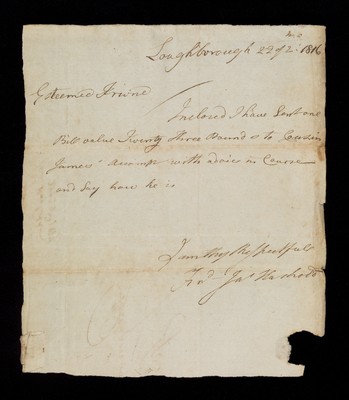 Loughborough 22 of 2 mo 1816
Esteemed Friend
Inclosed I have sent one
Bill value Twenty three Pounds to Cousin
James' Accompt with advice in Course
and say how he is
I am thy Respectfull
Frd Jas